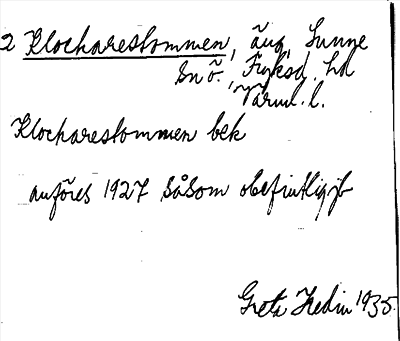 2 Klockarestommen, äng, Sunne
sn o., Fryksd. hd
Värml. l.
Klockarestommen bek
anföres 1927 såsom obefintlig jb
Greta Hedin 1935.